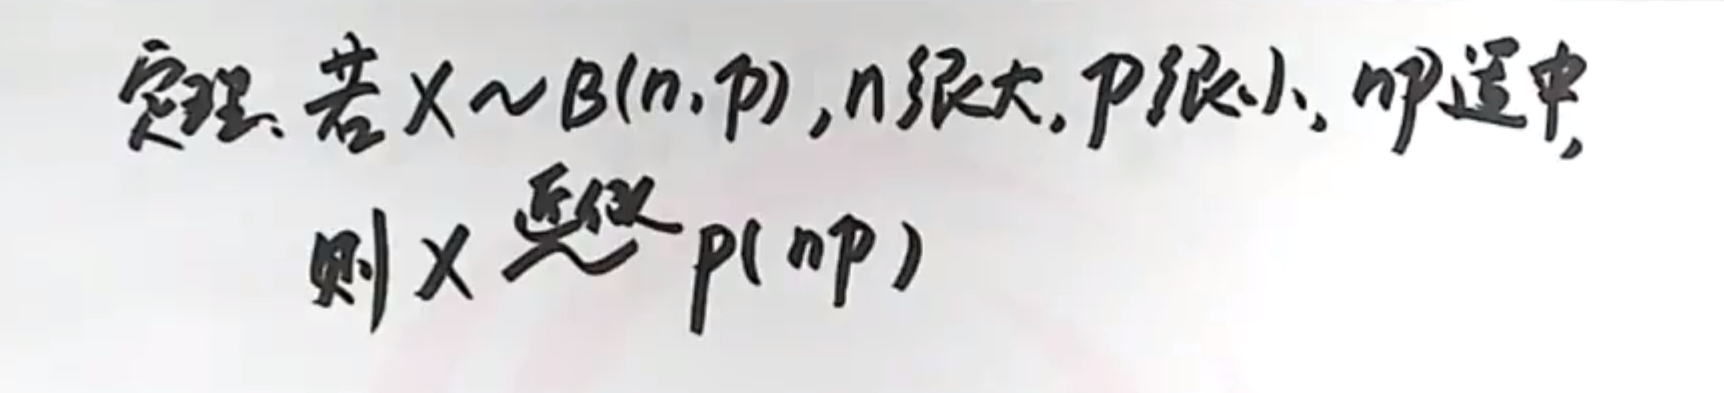 定理、若 X ~ B(n, p), n很大, p很小, np适中,
则 X 近似~ p(np)